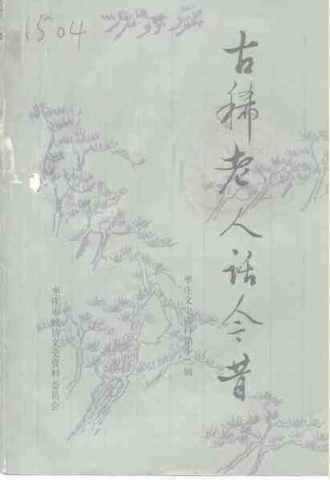 1504
古稀老人话今昔
枣庄文史资料第十一辑
枣庄市政协文史资料委员会